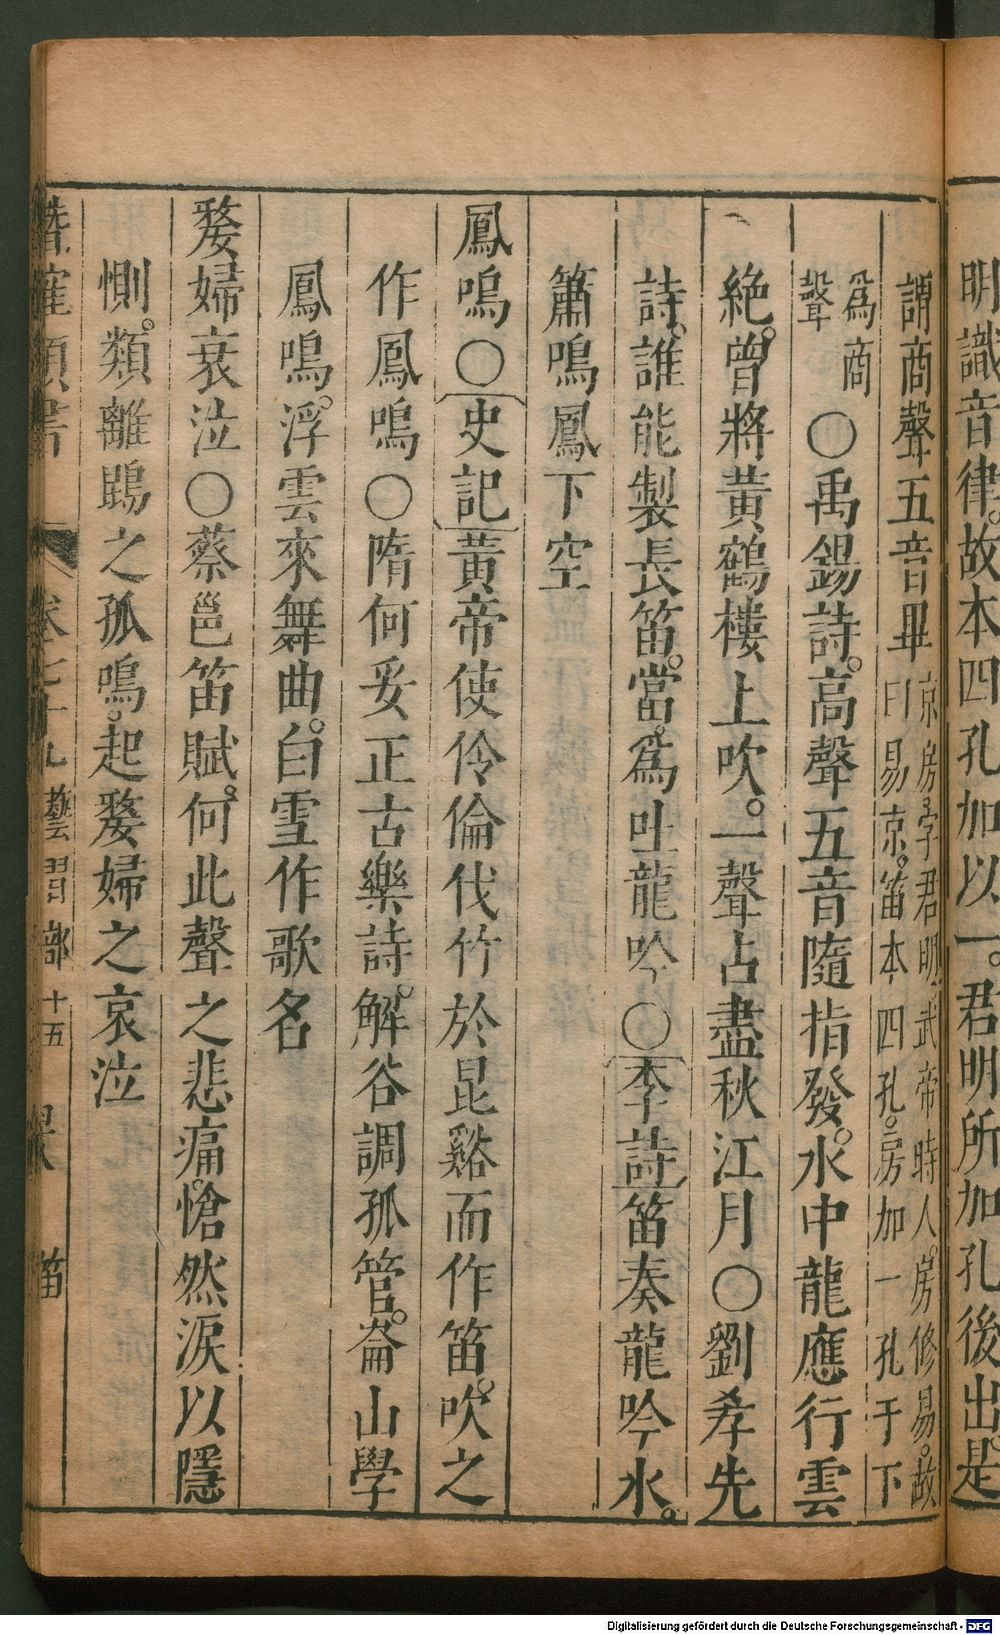 明識音律。故本四孔加以一。君明所加孔後出。是
謂商聲五音畢京房。字君明。武帝時人。房修易。故
曰易京。笛本四孔。房加一孔于下
為商
聲
〇禹錫詩。高聲五音隨指發。水中龍應行雲
絶。曾將黃鶴樓上吹。一聲占盡秋江月〇劉孝先
詩。誰能製長笛。當為吐龍吟〇李詩笛奏龍吟水。
簫鳴鳳下空
鳳鳴〇史記黃帝使伶倫伐竹於昆谿而作笛。吹之
作鳳鳴〇隋何妥正古樂詩。解谷調孤管。崙山學
鳳鳴。浮雲來舞曲。白雪作歌名
嫠婦哀泣〇蔡邕笛賦。何此聲之悲痛。愴然淚以隱
惻。類離鵾之孤鳴。起嫠婦之哀泣
潛確類書 卷七十九 藝習部 十五 笛
Digitalisierung gefördert durch die Deutsche Forschungsgemeinschaft - DFG